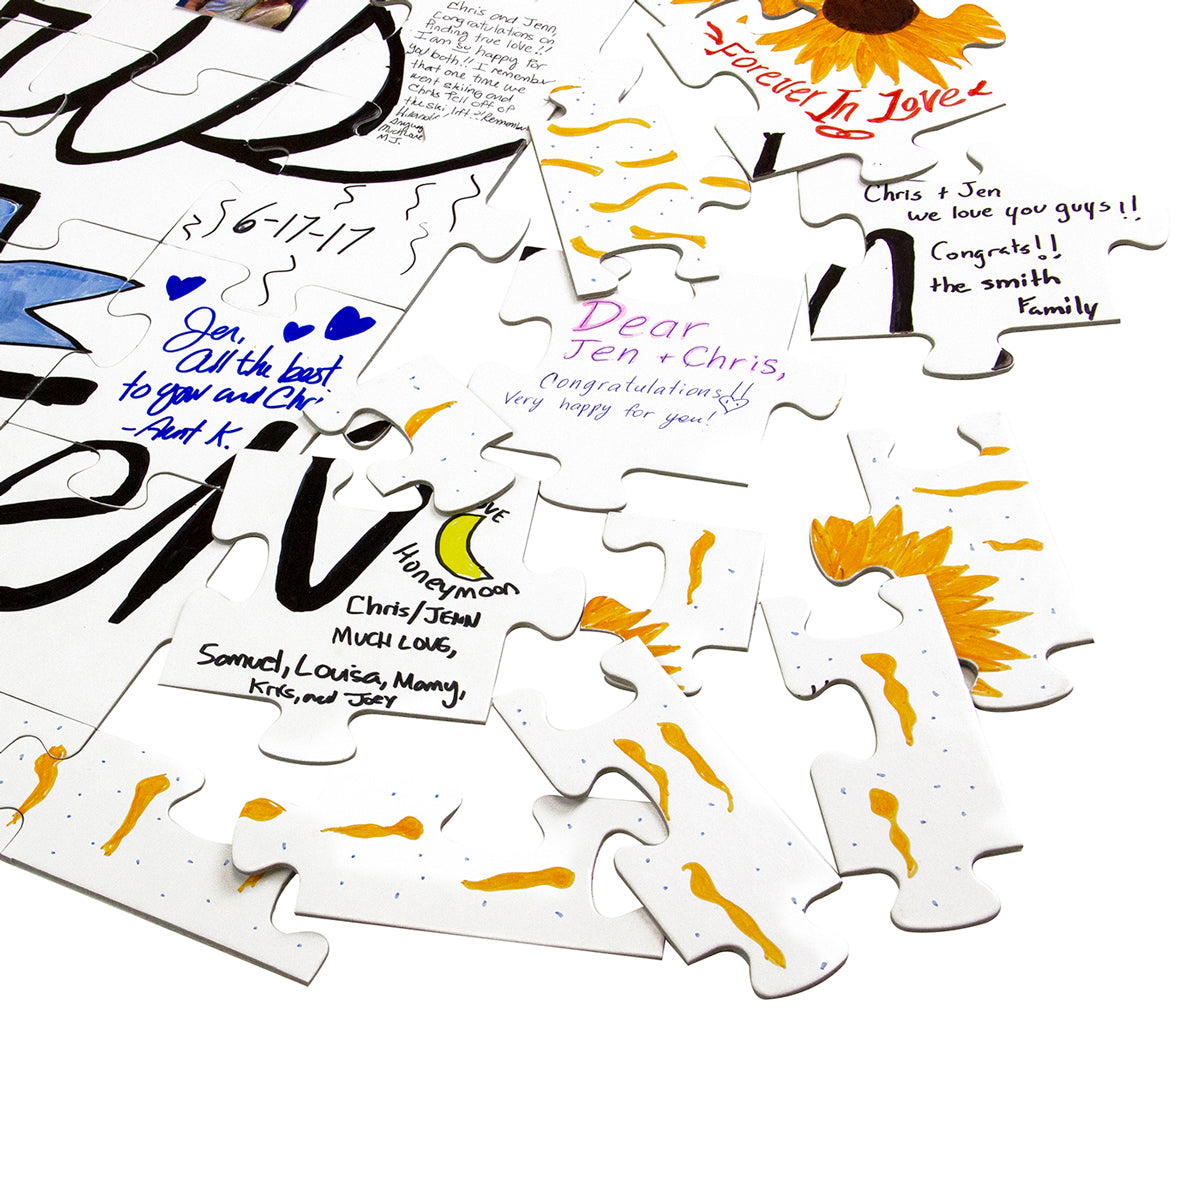 Chris and Jenn,
Congratulations on
finding true love!!
I am so happy for
you both!! I remember
that one time we
went skiing and
Chris fell off of
the ski lift.
Remember
Much love
M.J.
Forever In Love
Chris + Jen
we love you guys!!
Congrats!!
the smith
Family
6-17-17
Jen,
All the best
to you and Chri
-Aunt K.
Dear
Jen + Chris,
Congratulations!!
Very happy for you!
en
VE
Honeymoon
Chris/JENN
MUCH LOVE,
Samuel, Louisa, Mamy,
Kris, and Joey